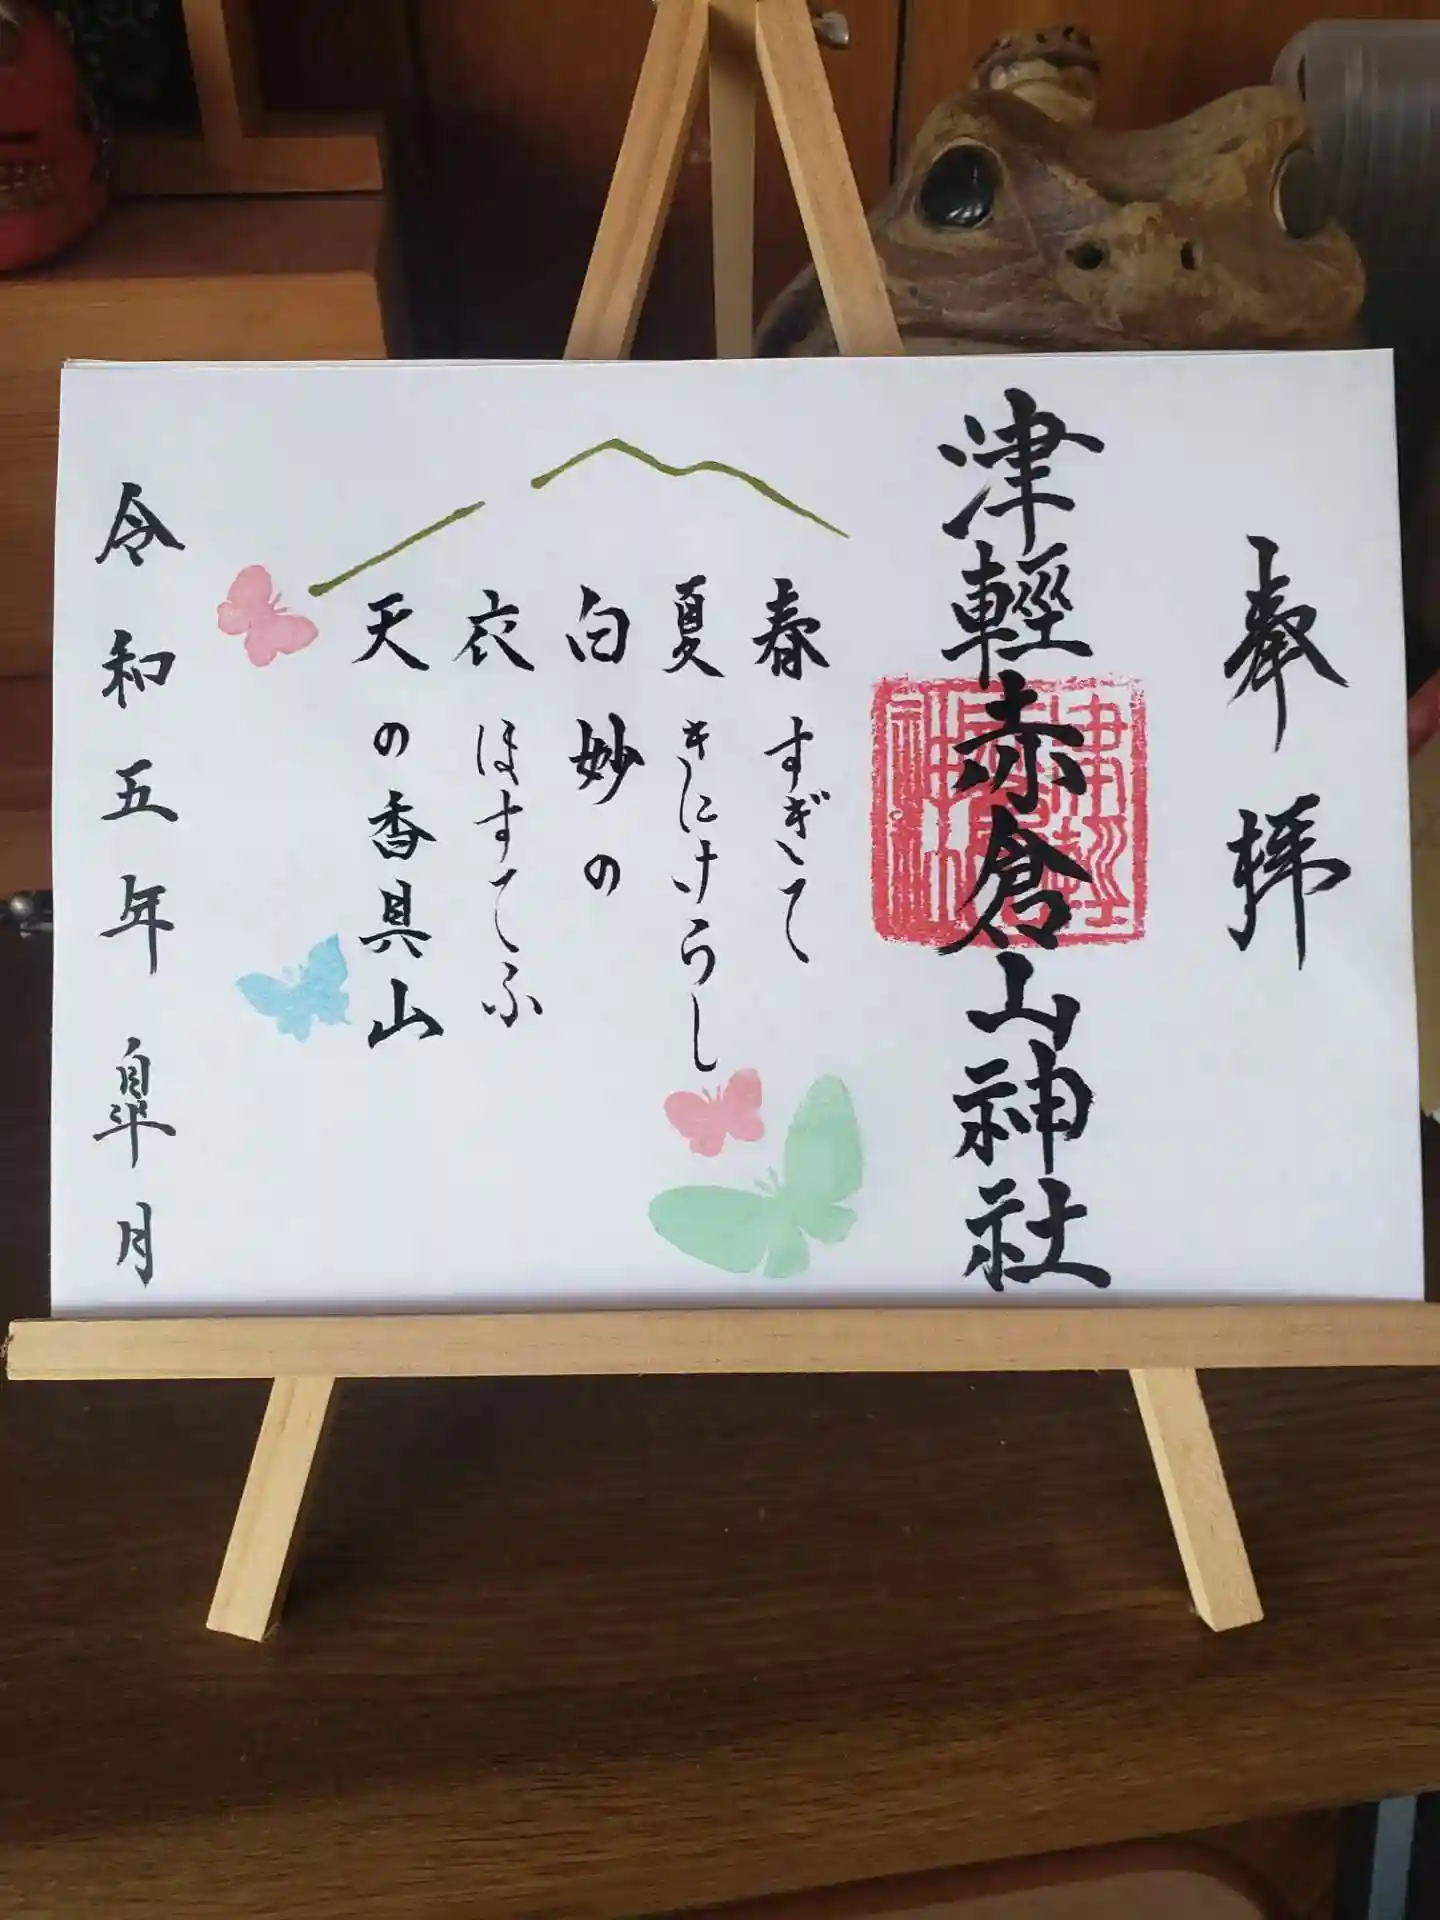 奉拝
津輕赤倉山神社
春すぎて
夏きにけらし
白妙の
衣ほすてふ
天の香具山
令和五年 皐月